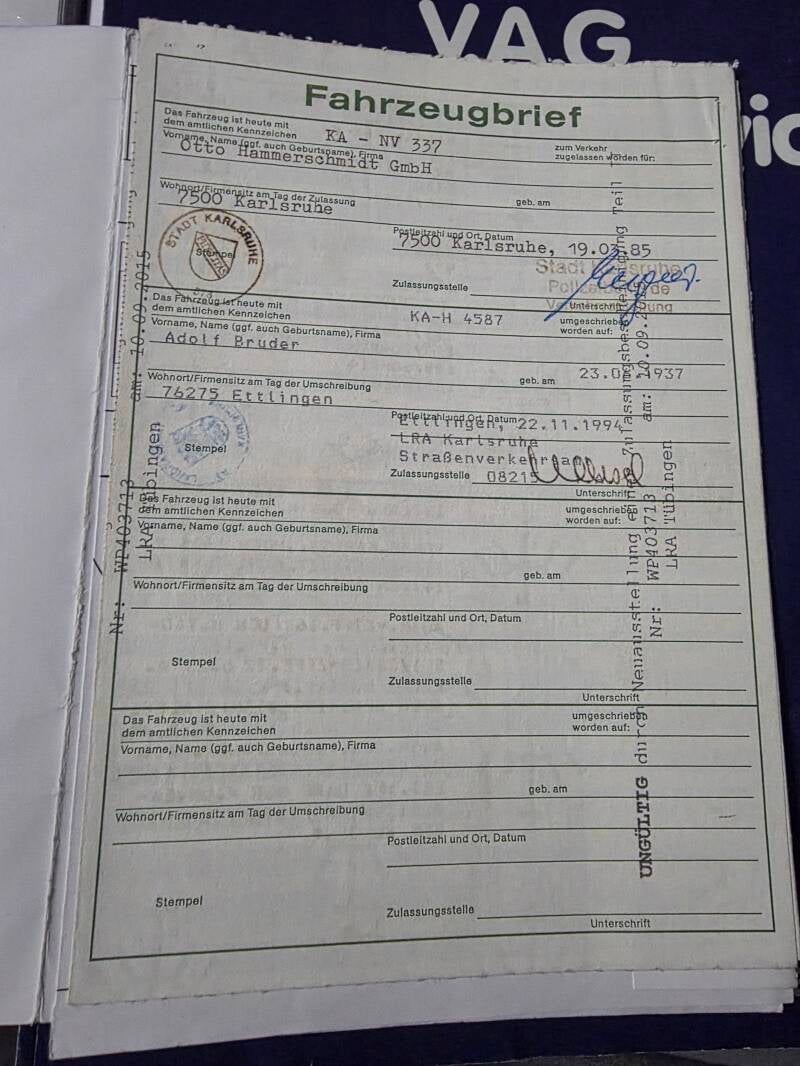 VAG
Fahrzeugbrief
Das Fahrzeug ist heute mit
dem amtlichen Kennzeichen KA - NV 337
zum Verkehr
zugelassen worden für:
Vorname, Name (ggf. auch Geburtsname), Firma
Otto Hammerschmidt GmbH
Wohnort/Firmensitz am Tag der Zulassung
geb. am
7500 Karlsruhe
Postleitzahl und Ort, Datum
7500 Karlsruhe, 19.03.85
STADT KARLSRUHE
Stempel
Stadt Karlsruhe
Zulassungsstelle
Unterschrift
Das Fahrzeug ist heute mit
dem amtlichen Kennzeichen KA-H 4587
umgeschrieben
worden auf:
Vorname, Name (ggf. auch Geburtsname), Firma
Adolf Bruder
geb. am 23.0 .1937
Wohnort/Firmensitz am Tag der Umschreibung
76275 Ettlingen
Postleitzahl und Ort, Datum
Ettlingen, 22.11.1994
LRA Karlsruhe
Stempel
Straßenverkehrsamt
Zulassungsstelle 08215
Unterschrift
Das Fahrzeug ist heute mit
dem amtlichen Kennzeichen
umgeschrieben
worden auf:
Vorname, Name (ggf. auch Geburtsname), Firma
geb. am
Wohnort/Firmensitz am Tag der Umschreibung
Postleitzahl und Ort, Datum
Stempel
Zulassungsstelle
Unterschrift
Das Fahrzeug ist heute mit
dem amtlichen Kennzeichen
umgeschrieben
worden auf:
Vorname, Name (ggf. auch Geburtsname), Firma
geb. am
Wohnort/Firmensitz am Tag der Umschreibung
Postleitzahl und Ort, Datum
Stempel
Zulassungsstelle
Unterschrift
Nr: WP403713 am: 10.09.2015
LRA Tübingen
UNGÜLTIG durch Neuausstellung einer Zulassungsbescheinigung Teil
Nr: WP403713 am: 10.09.2
LRA Tübingen